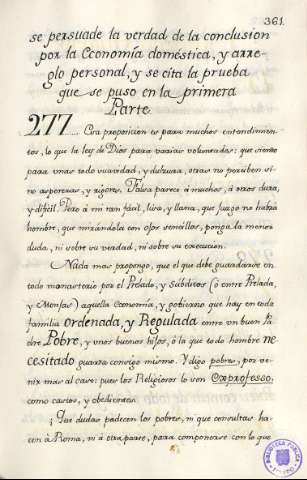 361.
se persuade la verdad de la conclusion
por la Economía doméstica, y arre-
glo personal, y se cita la prueba
que se puso en la primera
Parte
277... Esta proposicion es para muchos entendimien-
tos, lo que la ley de Dios para varias voluntades: que siendo
para unas todo suavidad, y dulzura, otras no perciben si-
no asperezas, y rigores. Falsa parece à muchos, à otros dura,
y dificil. Pero à mi tan fácil, lisa, y llana, que juzgo no habrá
hombre, que mirandola con ojos sencillos, ponga la menor
duda, ni sobre su verdad, ni sobre su execucion.
Nada mas propongo, que el que debe guardarse en
todo monasterio por el Prelado, y Subditos (ò entre Prelada,
y Monjas) aquella Economía, y gobierno que hay en toda
familia ordenada, y Regulada entre un buen Pa-
dre Pobre, y unos buenos hijos; ò la que todo hombre ne-
cesitado guarda consigo mismo. Y digo pobre, por ve-
nir mas al caso: pues los Religiosos lo son Exprofesso,
como castos, y obedientes.
¿Que dudas padecen los pobres, ni que consultas ha-
cen à Roma, ni à otra parte, para componerse con lo que
BIBLIOTECA PUBLICA
TOLEDO